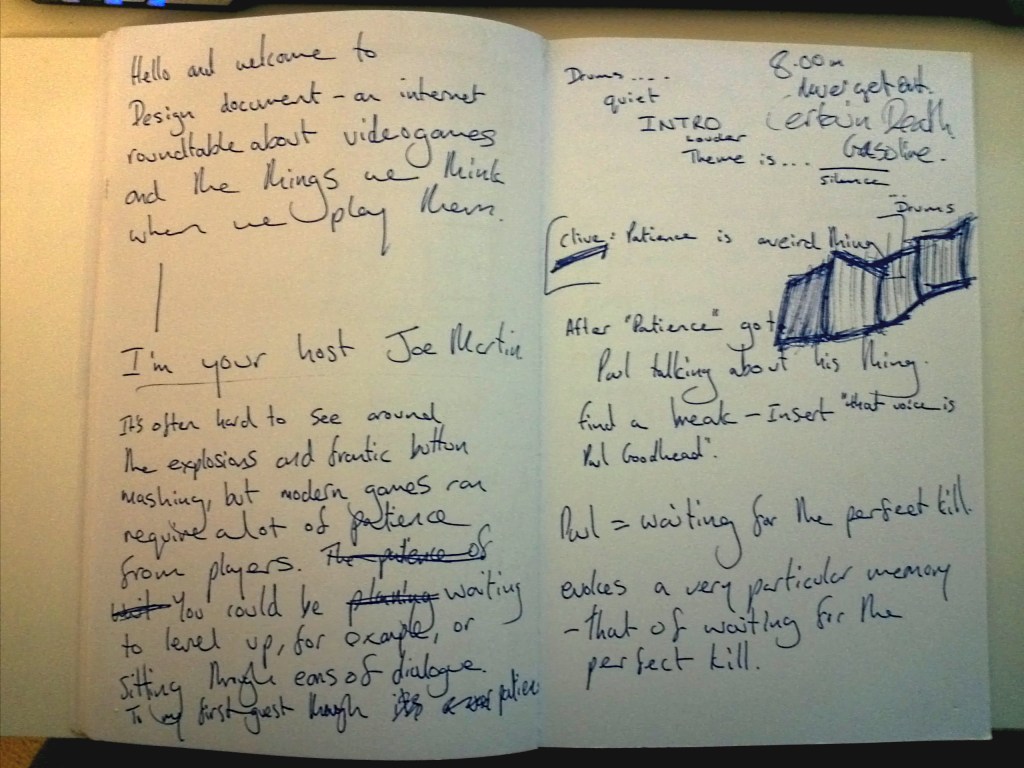 Hello and welcome to
Design document - an internet
roundtable about videogames
and the things we think
when we play them.
I'm your host Joe Martin
It's often hard to see around
the explosions and frantic button
mashing, but modern games can
require a lot of patience
from players. The patience of
You could be planning waiting
to level up, for example, or
sitting through eons of dialogue.
To my first guest though patien
Drums....
quiet
INTRO
Louder
Theme is...
8.00m
Never get out.
Certain Death
Gasoline.
silence
Drums
Clive: Patience is a weird thing
After "Patience" got
Paul talking about his thing.
find a break - Insert "that voice is
Paul Goodhead".
Paul = waiting for the perfect kill.
evokes a very particular memory
- that of waiting for the
perfect kill.